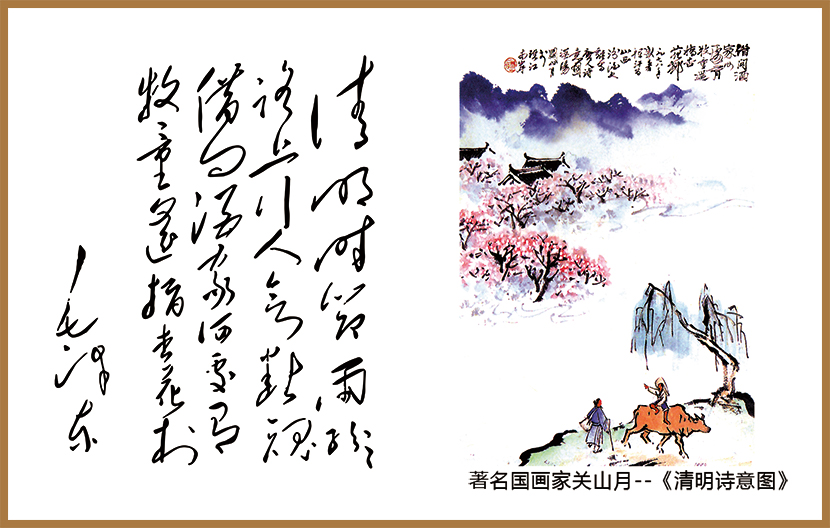 清明时节雨纷纷
路上行人欲断魂
借问酒家何处有
牧童遥指杏花村
毛泽东
借問酒
家何
處有
牧童遥
指杏
花邨
著名国画家关山月--《清明诗意图》